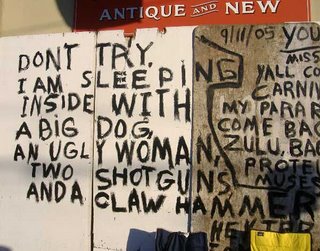 ANTIQUE AND NEW
DONT TRY.
I AM SLEEPING
INSIDE WITH
A BIG DOG,
AN UGLY WOMAN,
TWO SHOTGUNS
AND A CLAW HAMMER
9/11/05 YOU
MISS
YALL CO
CARNIV
MY PARAR
COME BAC
ZULU, BAC
PROTE
MUSES